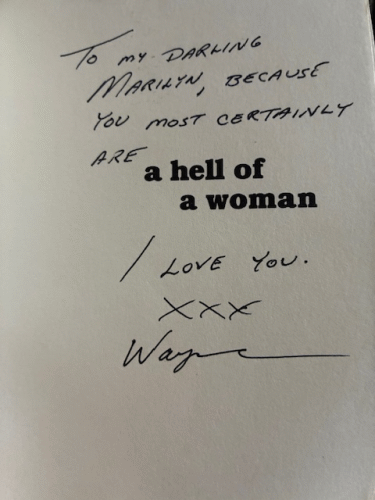 To my DARLING
MARILYN, BECAUSE
YOU MOST CERTAINLY
ARE
a hell of
a woman
I LOVE YOU.
XXX
Wayne